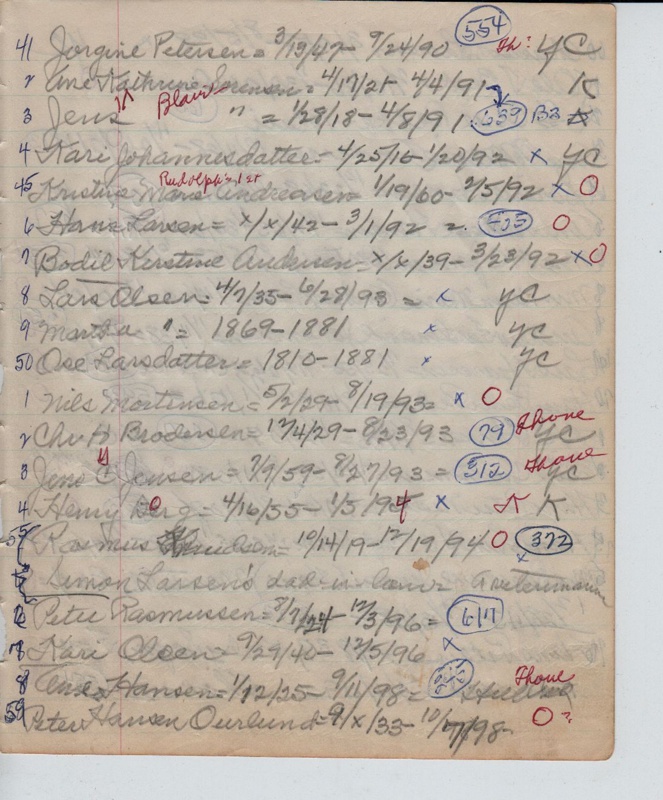 554
41 Jorgine Petersen = 3/13/47 - 9/24/90 Th: YC
2 Ane Kathrine Sorensen = 4/17/21 - 4/4/91 K
3 Jens " = 1/28/18 - 4/8/91 639 B2
4 Kari Johannesdatter = 4/25/16 - 1/20/92 x YC
Rudolph's 1st
45 Kristine Marie Andreasen = 1/19/60 - 2/5/92 x O
6 Hans Larsen = x/x/42 - 3/1/92 = O
7 Bodil Kerstine Andersen = x/x/39 - 3/23/92 x O
8 Lars Olsen = 4/7/35 - 6/28/93 = x YC
9 Martha " = 1869 - 1881 x YC
50 Ose Larsdatter = 1810 - 1881 x YC
1 Nils Mortensen = 5/2/29 - 8/19/93 = x O
2 Chr H Brodersen = 12/4/29 - 8/23/93 79 Thone YC
3 Jens Jensen = 7/9/59 - 8/27/93 = 312 Thone YC
4 Henry Berg = 4/16/55 - 1/5/94 x K K
55 Rasmus Knudsen = 10/14/19 - 12/19/94 O 372
x
Simon Larsen's dad-in-law
Peter Rasmussen = 8/7/24 - 12/3/96 = 617
Kari Olsen = 9/29/40 - 12/5/96 x
8 Ane Hansen = 1/12/25 - 9/11/98 = Thone
59 Peter Hansen Ourlund = 9/x/33 - 10/17/98 - O?